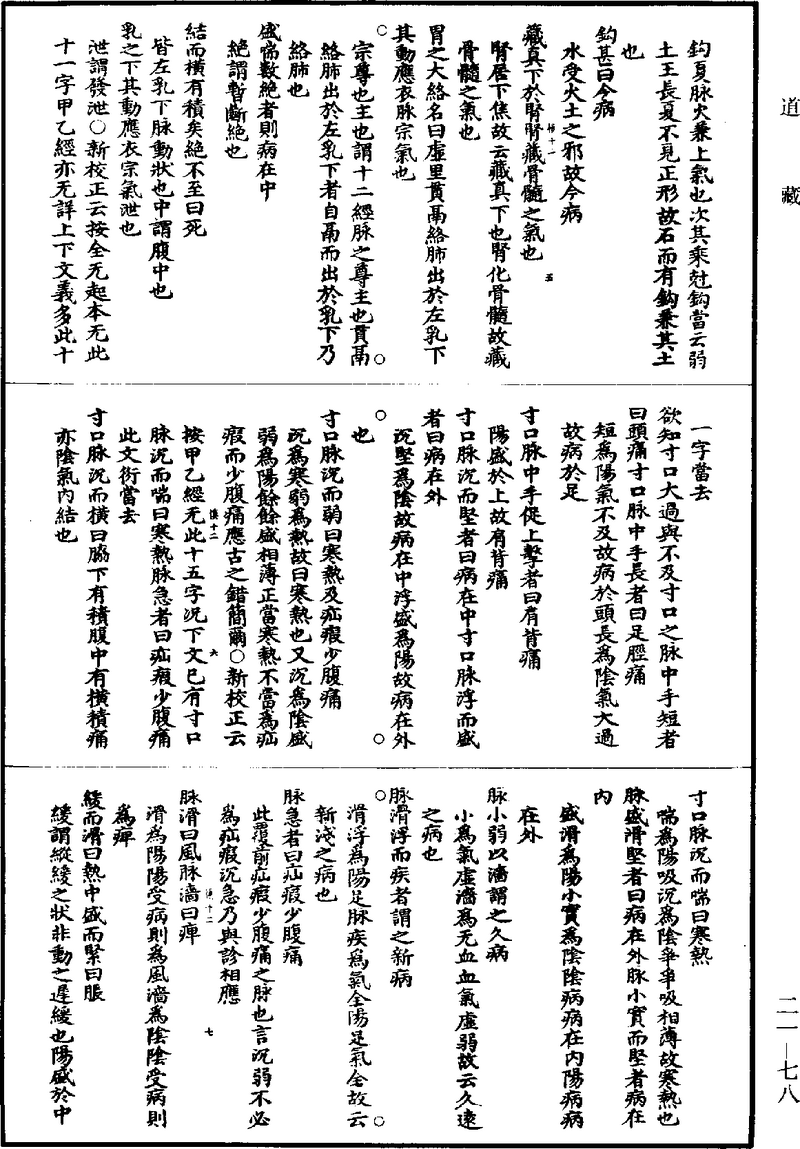 鈎夏脉火兼上氣也次其乘尅鈎當云弱
土王長夏不見正形故石而有鈎兼其土
也
鈎甚曰今病
水受火土之邪故今病
藏真下於腎腎藏骨髓之氣也
腎居下焦故云藏真下也腎化骨髓故藏
骨髓之氣也
胃之大絡名曰虛里貫鬲絡肺出於左乳下
其動應衣脉宗氣也
宗尊也主也謂十二經脉之尊主也貫鬲
絡肺出於左乳下者自鬲而出於乳下乃
絡肺也
盛喘數絶者則病在中
絶謂暫斷絶也
結而橫有積矣絶不至曰死
皆左乳下脉動狀也中謂腹中也
乳之下其動應衣宗氣泄也
泄謂發泄○新校正云按全无起本无此
十一字甲乙經亦无詳上下文義多此十
一字當去
欲知寸口大過與不及寸口之脉中手短者
曰頭痛寸口脉中手長者曰足脛痛
短爲陽氣不及故病於頭長爲陰氣大過
故病於足
寸口脉中手促上擊者曰肩背痛
陽盛於上故肩背痛
寸口脉沉而堅者曰病在中寸口脉浮而盛
者曰病在外
沉堅爲陰故病在中浮盛爲陽故病在外
也
寸口脉沉而弱曰寒熱及疝瘕少腹痛
沉爲寒弱爲熱故曰寒熱也又沉爲陰盛
弱爲陽餘餘盛相薄正當寒熱不當爲疝
瘕而少腹痛應古之錯簡爾○新校正云
按甲乙經无此十五字况下文已有寸口
脉沉而喘曰寒熱脉急者曰疝瘕少腹痛
此文衍當去
寸口脉沉而橫曰脇下有積腹中有橫積痛
亦陰氣內結也
寸口脉沉而喘曰寒熱
喘爲陽吸沉爲陰爭爭吸相薄故寒熱也
脉盛滑堅者曰病在外脉小實而堅者病在
內
盛滑爲陽小實爲陰陰病病在內陽病病
在外
脉小弱以濇謂之久病
小爲氣虛濇爲无血血氣虛弱故云久遠
之病也
脉滑浮而疾者謂之新病
滑浮爲陽足脉疾爲氣全陽足氣全故云
新淺之病也
脉急者曰疝瘕少腹痛
此覆前疝瘕少腹痛之脉也言沉弱不必
爲疝瘕沉急乃與診相應
脉滑曰風脉濇曰痺
滑爲陽陽受病則爲風濇爲陰陰受病則
爲痺
緩而滑曰熱中盛而緊曰脹
緩謂縱緩之狀非動之遲緩也陽盛於中
道藏
二一—七八